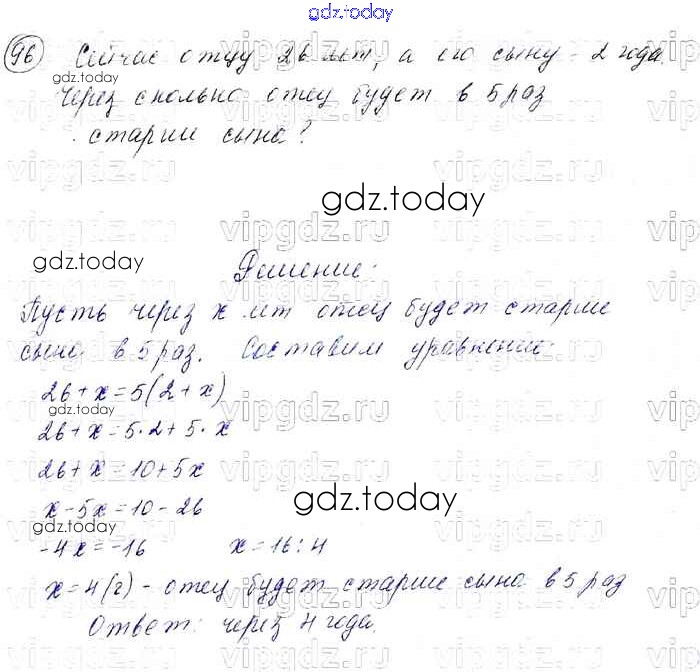 gdz.today
96 Сейчас отцу 26 лет, а его сыну - 2 года.
gdz.today
Через сколько отец будет в 5 раз
старше сына?
gdz.today
gdz.today
Решение:
Пусть через x лет отец будет старше
сына в 5 раз. Составим уравнение:
26+x=5(2+x)
gdz.today
26+x=5·2+5·x
26+x=10+5x
x-5x=10-26
gdz.today
gdz.today
-4x=-16 x=16:4
x=4(г) - отец будет старше сына в 5 раз
Ответ: через 4 года.
vipgdz.ru